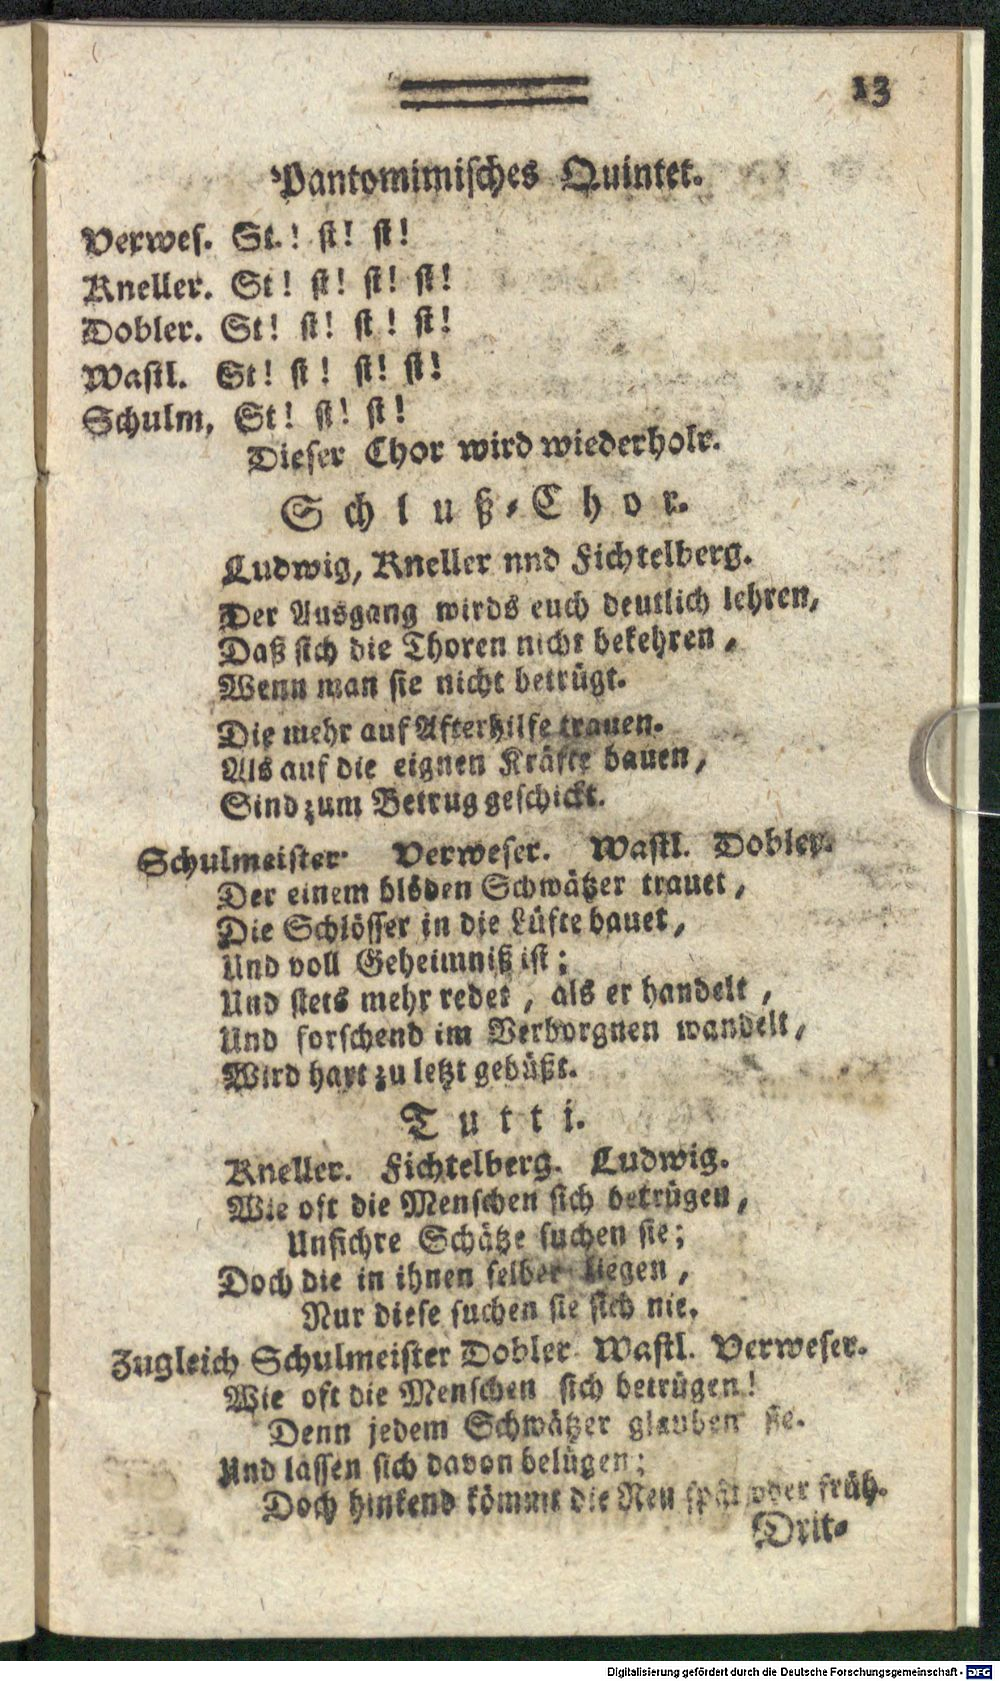 13
Pantomimisches Quintet.
Verwes. St.! st! st!
Kneller. St! st! st! st!
Dobler. St! st! st! st!
Wastl. St! st! st! st!
Schulm, St! st! st!
Dieser Chor wird wiederholt.
Schluß-Chor.
Ludwig, Kneller nnd Fichtelberg.
Der Ausgang wirds euch deutlich lehren,
Daß sich die Thoren nicht bekehren,
Wenn man sie nicht betrügt.
Die mehr auf Afterhilfe trauen.
Als auf die eignen Kräfte bauen,
Sind zum Betrug geschickt.
Schulmeister Verweser. Wastl. Dobler.
Der einem blöden Schwätzer trauet,
Die Schlösser in die Lüfte bauet,
Und voll Geheimniß ist;
Und stets mehr redet, als er handelt,
Und forschend im Verborgnen wandelt,
Wird hart zu letzt gebüßt.
Tutti.
Kneller. Fichtelberg. Ludwig.
Wie oft die Menschen sich betrügen,
Unsichre Schätze suchen sie;
Doch die in ihnen selber liegen,
Nur diese suchen sie sich nie.
Zugleich Schulmeister Dobler Wastl. Verweser.
Wie oft die Menschen sich betrügen!
Denn jedem Schwätzer glauben sie.
Und lassen sich davon belügen;
Doch hinkend kömmt die Reu spät oder früh.
Drit-
Digitalisierung gefördert durch die Deutsche Forschungsgemeinschaft - DFG